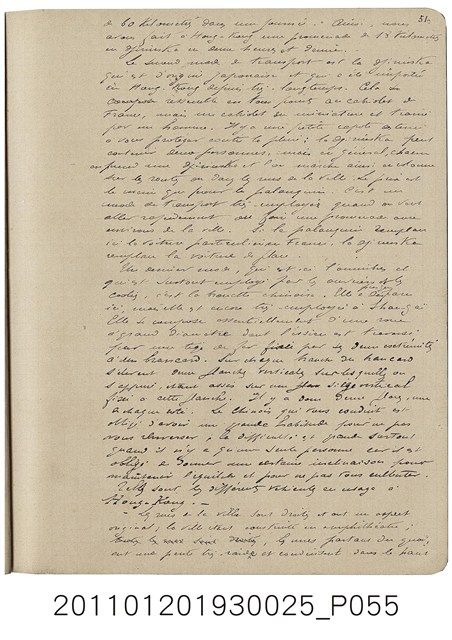 51.
de 60 kilomètres dans une journée. Ainsi, nous
avons fait à Hong-Kong une promenade de 13 kilomètres
en djinriska en deux heures et demie.
Le second mode de transport est la djinriska
qui est d'origine japonaise et qui a été importée
en Hong Kong depuis très longtemps. Cela
ressemble en tous points au cabriolet de
France, mais un cabriolet en miniature et traîné
par un homme. Il y a une petite capote
à vous protéger contre la pluie; la djinriska peut
contenir deux personnes, mais en général, chacun
en prend une et l'on marche ainsi
sur les routes ou dans les rues de la ville. Le prix est
le même que pour le palanquin. C'est un
mode de transport très employé quand on veut
aller rapidement ou faire une promenade aux
environs de la ville. Si le palanquin remplace
ici la voiture particulière en France, la djinriska
remplace la voiture de place.
Un dernier mode, qui est ici l'omnibus et
qui est surtout employé par les ouvriers et les
coolies, c'est la brouette chinoise. Elle a disparu
ici, mais elle est encore très employée à Shangaï
Elle se compose essentiellement d'une roue
à grand diamètre dont l'essieu est
par une tige de fer fixée par les deux extrémités
à un brancard. Sur chaque branche du brancard
s'élèvent deux planches verticales sur lesquelles on
s'appuie, étant assis sur un siège
fixé à cette planche. Il y a donc deux places, une
à chaque côté. Le Chinois qui vous conduit est
obligé d'avoir une grande habitude pour ne pas
vous renverser; la difficulté est grande surtout
quand il n'y a qu'une seule personne car il est
obligé de donner une certaine inclinaison pour
maintenir l'équilibre et pour ne pas tout culbuter.
Telles sont les différents véhicules en usage à
Hong-Kong. -
- Les rues de la ville sont droites et ont un aspect
original; la ville étant construite en amphithéâtre;
les rues partant du quai,
ont une pente très raide et conduisent dans le haut
201101201930025_P055